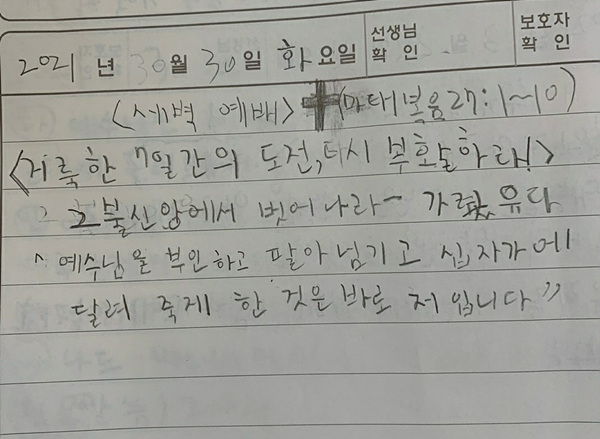 선생님 확 인 보호자 확 인
2021 년 30월 30일 화요일
<세벽 예배> (마태복음 27:1~10)
<거룩한 7일간의 도전, 다시 부흥하라!>
그 불신앙에서 벗어나라~ 가룟 유다
예수님을 부인하고 팔아 넘기고 십자가에
달려 죽게 한 것은 바로 저 입니다"